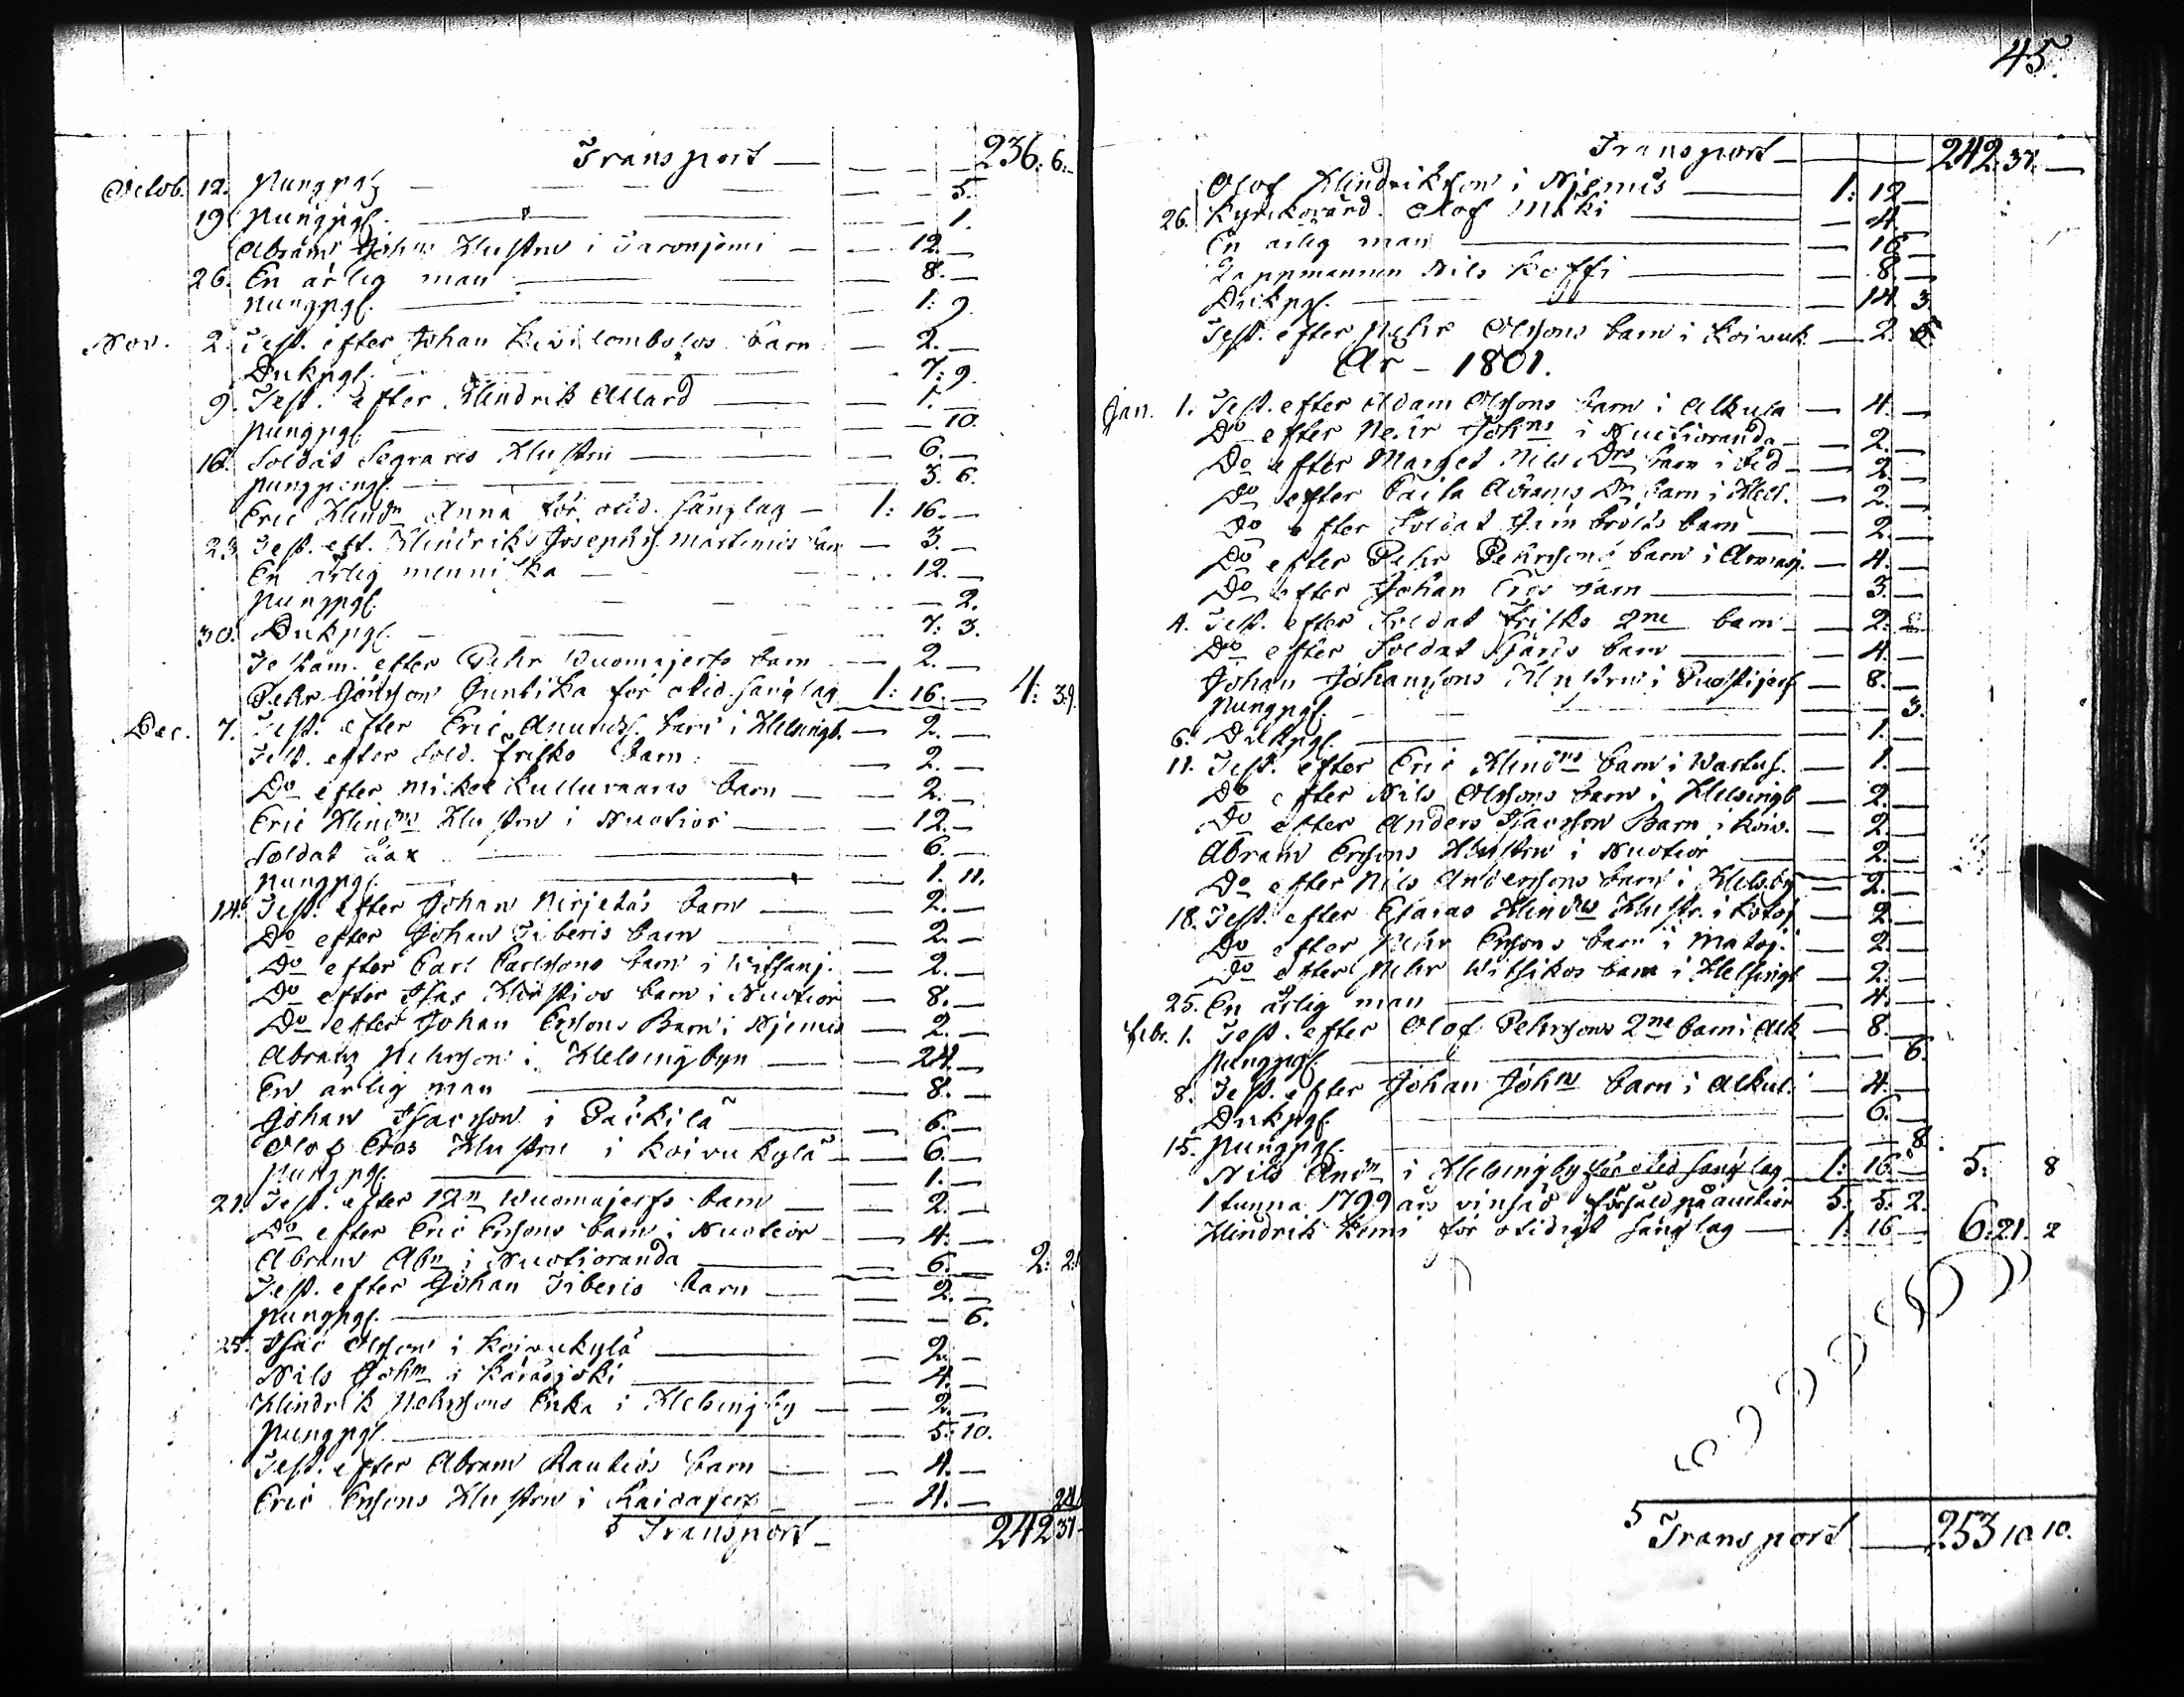 Transport — 236. 6.
Octob. 12. Pungpg — 5.
19 Pungpgr. — 1.
Abram Johns Hustru i Turonjemi — 12. —
26. En ärlig man — 8. —
Pungpgr. — 1: 9.
Nov. 2. Test. efter Johan Kivilombolos barn — 2. —
Dukpgr. — 7: 9.
9. Test. efter Hindrik Allard — 1. —
Pungpgr. — 10.
16. Soldat Segraris Hustru — 6. —
Pungpengr. — 3. 6.
Eric Hindn Anna för otid. sänglag — 1: 16. —
23 Test. eft. Hindrik Josephs. Martimis barn — 3. —
En ärlig menniska — 12. —
Pungpgr. — 2.
30. Dukpgr. — 7: 3.
Testam. efter Pehr Wuomajerfs barn — 2. —
Pehr Jönsson Guntika för otid. sänglag 1: 16. — 4: 39
Dec. 7. Test. efter Eric Anunds. barn i Helsingb. — 2. —
Test. efter Sold. Frisks barn — 2. —
Do efter Mickel Kulluvaaras barn — 2. —
Eric Hindns Hustru i Nuotior — 12. —
Soldat Sax — 6. —
Pungpgr. — 1. 11.
14. Test. efter Johan Nirjetäs barn — 2. —
Do efter Johan Tiberis barn — 2. —
Do efter Carl Carlssons barn i Wittanj. — 2. —
Do efter Isac barn i Nuotior — 8. —
Do efter Johan Erssons Barn i Njemis — 2. —
Abram Pehrsson i Helsingbyn — 24. —
En ärlig man — 8. —
Johan Isacsson i Päckilä — 6. —
Olof Eros Hustru i Koivukylä — 6. —
Pungpgr. — 1. —
21. Test. efter Wuomajerfs barn — 2. —
Do efter Eric Erssons barn i Nuotior — 4. —
Abram Abn i Nuotioranda — 6. — 2: 21
Test. efter Johan Tiberis barn — 2. —
Pungpgr. — 6.
25. Isac Olsson i Koivukylä — 2. —
Nils John i Käräsjoki — 4. —
Hindrik Pehrssons Enka i Helsingby — 2. —
Pungpgr. — 5: 10.
Test. efter Abram Rautios barn — 4. —
Eric Erssons Hustru i Kaidajerf — 4. — 24
S Transport — 242 37
45.
Transport — 242. 37. —
Olof Hindriksson i Njemis — 1: 12 —
26. Kyrckovärd. Olof Mäki — 4 —
En ärlig man — 16 —
Lappmannen Nils Koffi — 8. —
Dukpgr. — 14. 3.
Test. efter Pehr Olssons barn i Koivuk — 2.
År — 1801.
Jan. 1. Test. efter Adam Olssons barn i Alkula — 4. —
Do efter Pehr Johns i Nuotioranda — 2. —
Do efter Marget Nils Drs barn i — 2. —
Do efter Caisa Abrams Dr barn i Hels. — 2. —
Do efter Soldat barn — 2. —
Do efter Pehr Pehrssons barn i Armasj. — 4. —
Do efter Johan Eros barn — 3. —
4. Test. efter Soldat Frisks 2ne barn — 2.
Do efter Soldat barn — 4. —
Johan Johanssons Hustru i Puostijerf — 8. —
Pungpgr. — 3.
6. Dukpgr. — 1. —
11. Test. efter Eric Hindns barn i Wartus. — 1. —
Do efter Nils Olssons barn i Helsingb — 2. —
Do efter Anders Isacsson Barn i Koiv. — 2. —
Abram Erssons Hustru i Nuotior — 2. —
Do efter Nils Anderssons barn i Helsby — 2. —
18. Test. efter Esaias Hindns Hustr. i — 2. —
Do efter Pehr Erssons barn i Mataj. — 2. —
Do efter Pehr Witsikos barn i Helsingb — 2. —
25. En ärlig man — 4. —
Febr. 1. Test. efter Olof Pehrssons 2ne barn i Alk — 8. —
Pungpgr. — 6.
8. Test. efter Johan Johns barn i Alkul. — 4. —
Dukpgr. — 6. —
15. Pungpgr. — 8.
Nils Andn i Helsingby för otid sänglag 1: 16. — 5: 8
1 tunna 1799 års vinsäd försåld på auction 5: 5. 2.
Hindrik Kemi för otidigt sänglag — 1: 16 — 6: 21. 2
S Transport — 253 10 10.